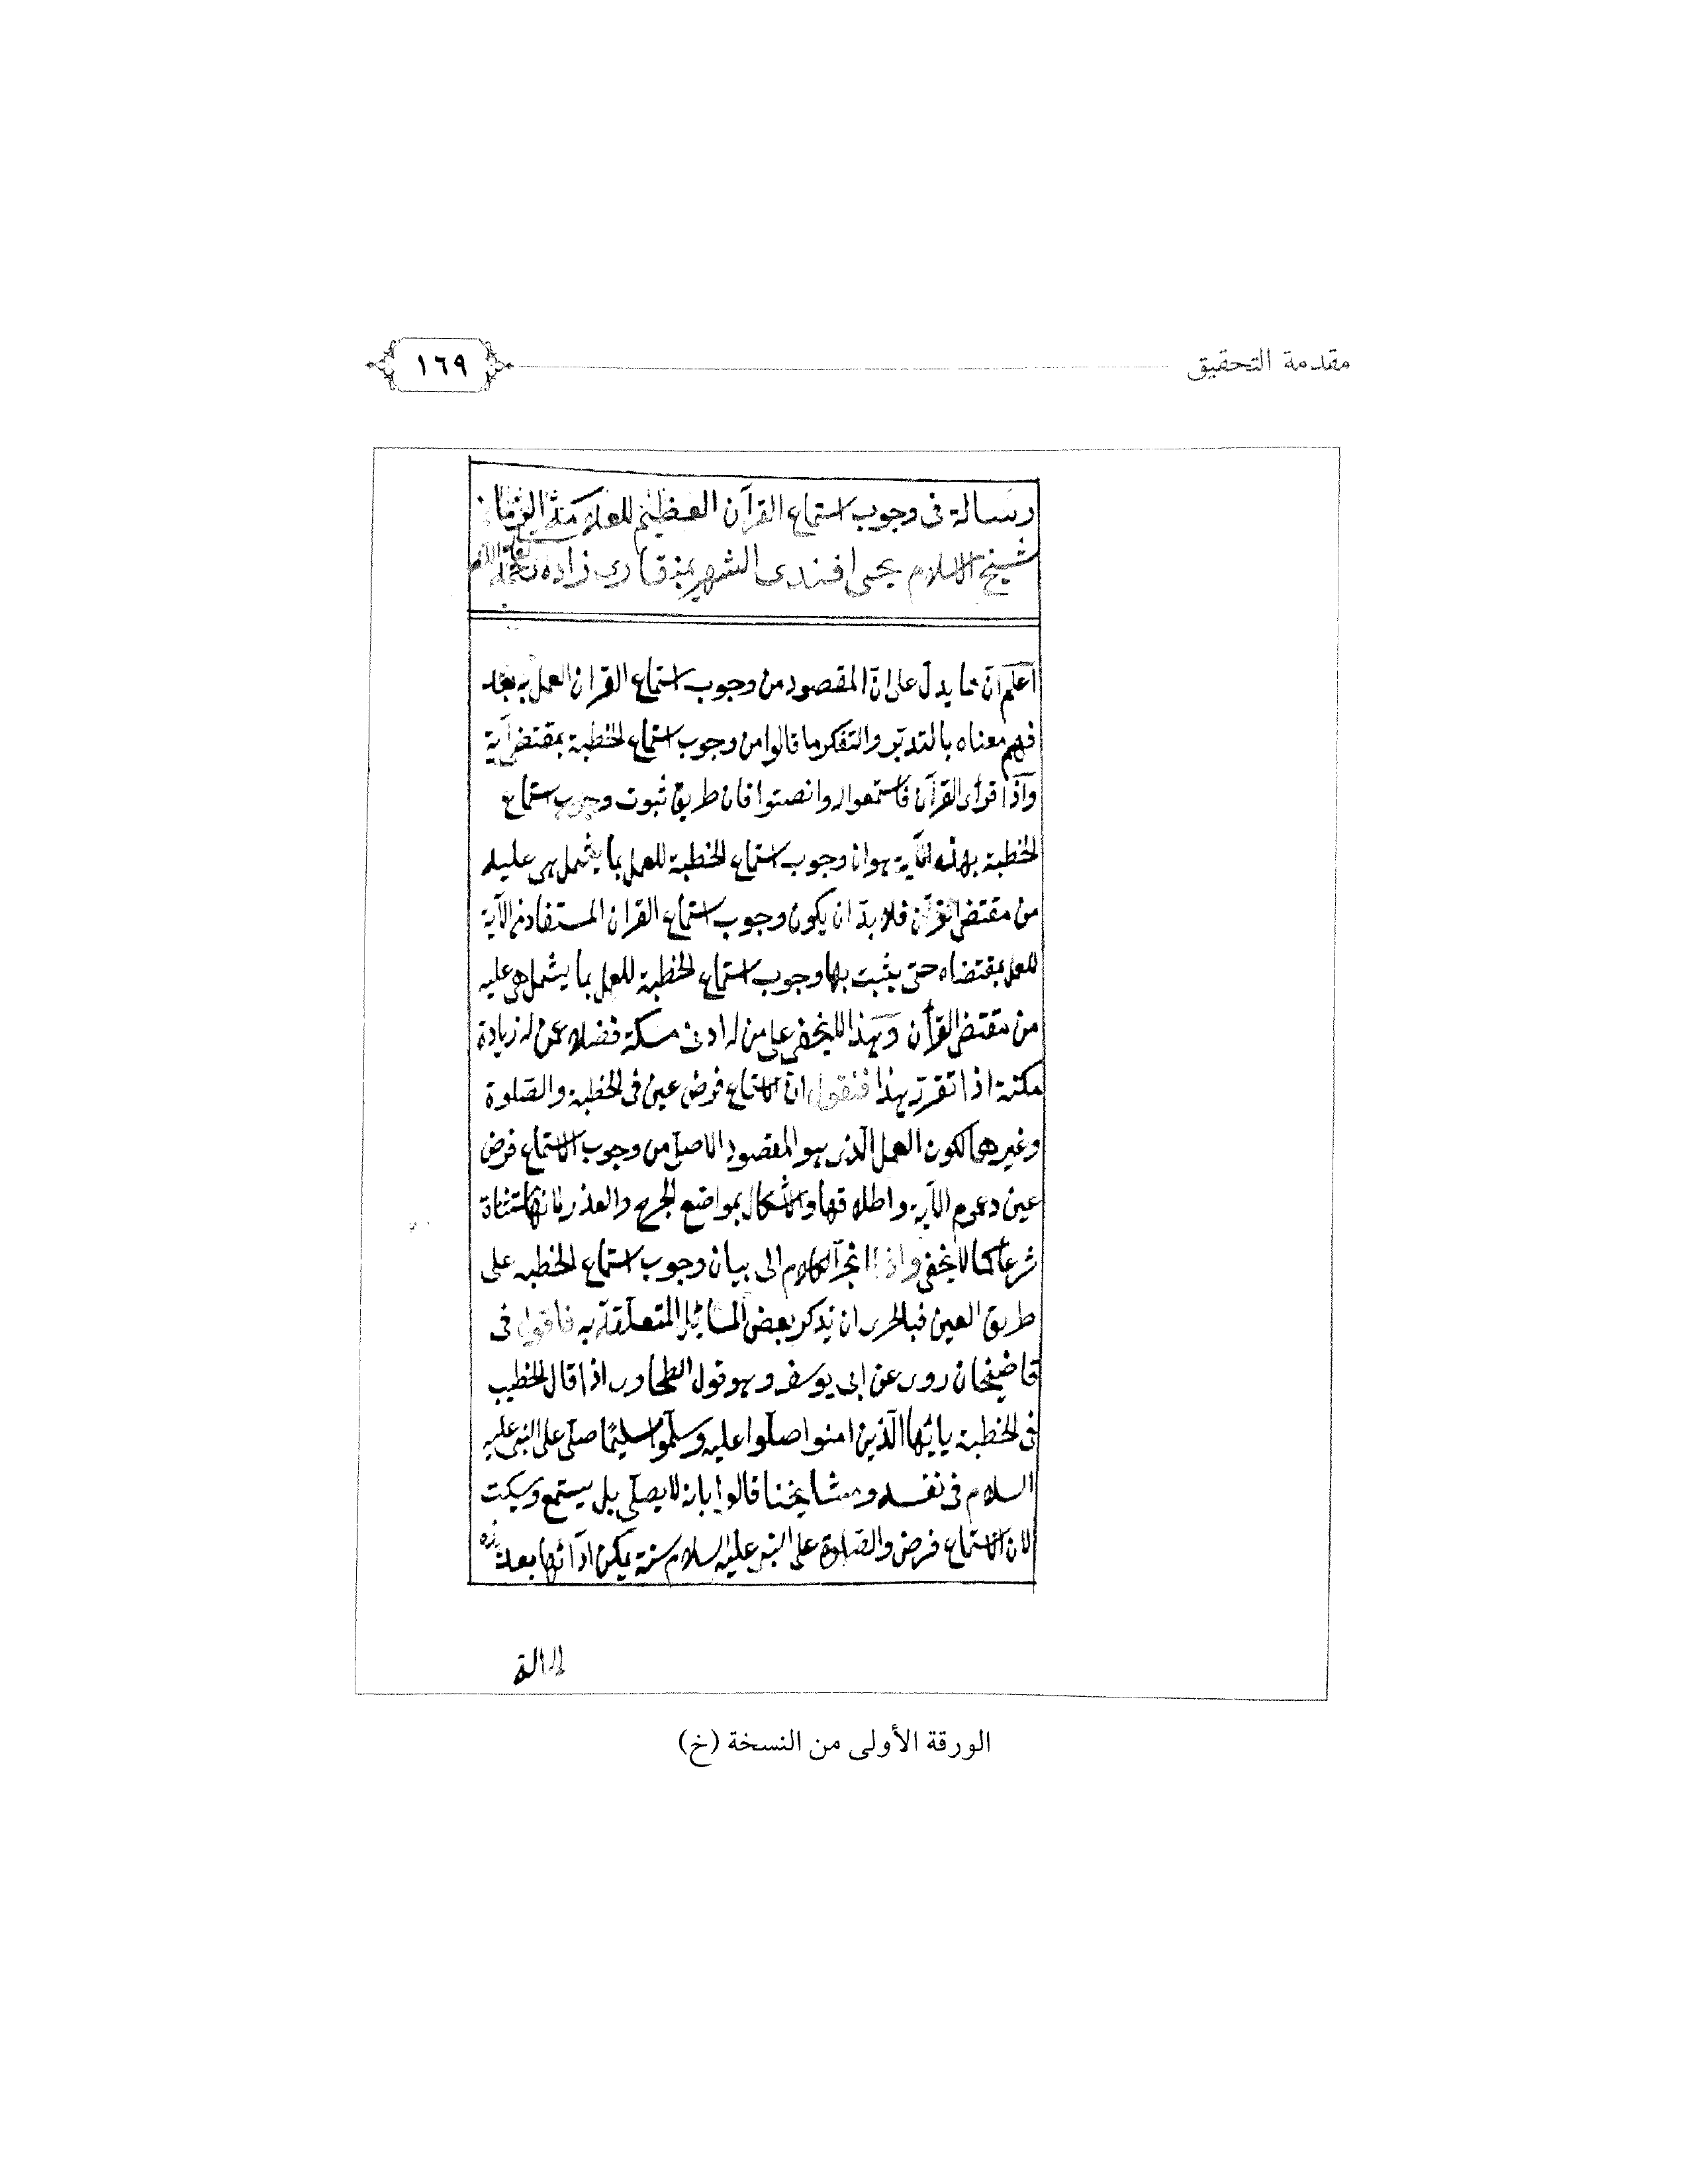 مقدمة التحقيق
١٦٩
رسالة فى وجوب استماع القرآن العظيم للعلامة الزمان
شيخ الاسلام يحيى افندى الشهير بمنقارى زاده
اعلم ان مما يدل على ان المقصود من وجوب استماع القران العمل به بعد
فهم معناه بالتدبر والتفكر ما قالوا من وجوب استماع الخطبة بمقتضى آية
واذا قرأى القرآن فاستمعوا له وانصتوا فان طريق ثبوت وجوب استماع
الخطبة بهذه الآية هو ان وجوب استماع الخطبة للعمل بما يشمل هى عليه
من مقتضى القرآن فلا بد ان يكون وجوب استماع القران المستفاد من الآية
للعمل بمقتضاه حتى يثبت بها وجوب استماع الخطبة للعمل بما يشمل هى عليه
من مقتضى القرأن وهذا لا يخفى على من له ادنى مسكة فضلا عمن له زيادة
مكنة اذا تقرر هذا فنقول ان الاستماع فرض عين فى الخطبة والصلوة
وغيرهما لكون العمل الذى هو المقصود الاصلى من وجوب الاستماع فرض
عين وعموم الآية واطلاقها والاشكال بمواضع الحرج والعذر بانها مستثناة
شرعا كما لا يخفى واذا انجر الكلام الى بيان وجوب استماع الخطبه على
طريق العين فبالحرى ان نذكر بعض المسائل المتعلقة به فاقول فى
قاضيخان روى عن ابى يوسف وهو قول الطحاوى اذا قال الخطيب
فى الخطبة يايها الذين امنوا صلوا عليه وسلموا تسليما صلى على النبى عليه
السلام فى نفسه ومشايخنا قالوا بانه لا يصلى بل يستمع ويسكت
لان الاستماع فرض والصلوة على النبى عليه السلام سنة يمكن ادائها بعد هذه
الورقة الأولى من النسخة (خ)